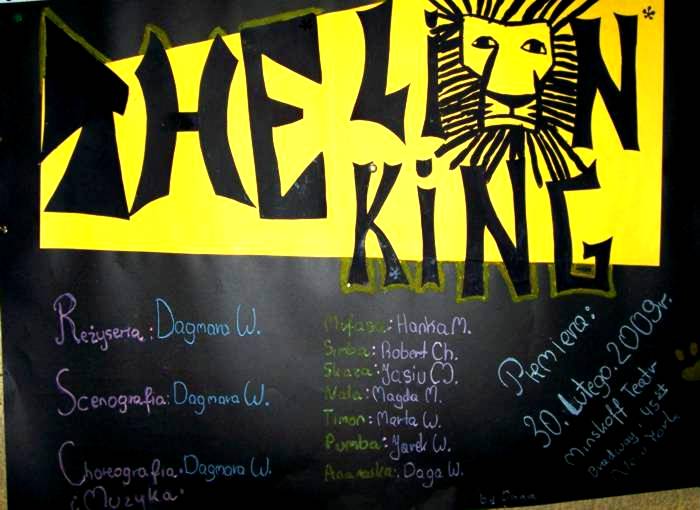 THE LION
KING
Reżyseria: Dagmara W.
Scenografia: Dagmara W.
Choreografia: Dagmara W.
i Muzyka:
Mufasa: Hanka M.
Simba: Robert Ch.
Skaza: Jasiu W.
Nala: Magda M.
Timon: Marta W.
Pumba: Jarek W.
Daga W.
Premiera:
30. Lutego. 2009r.
Minskoff Teatr
Broadway, 45st
New York
by